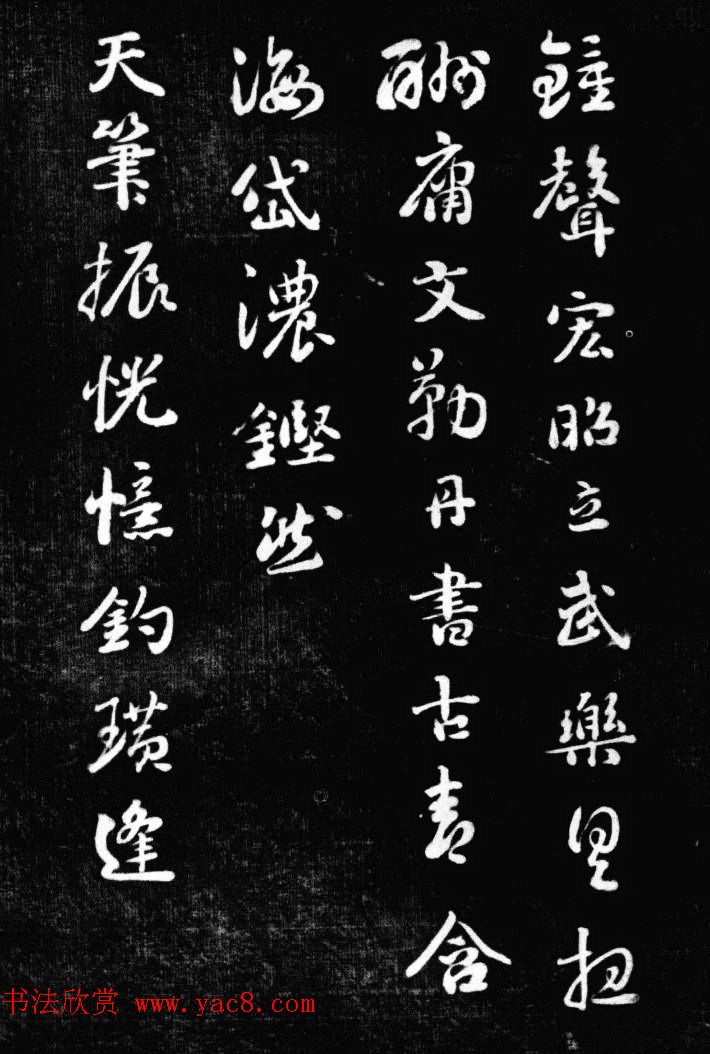 鐘聲宏昭立武樂
酬庸文勒丹書古青含
海岱濃鏗然
天筆振恍憶鈞璜逢
书法欣赏 www.yac8.com